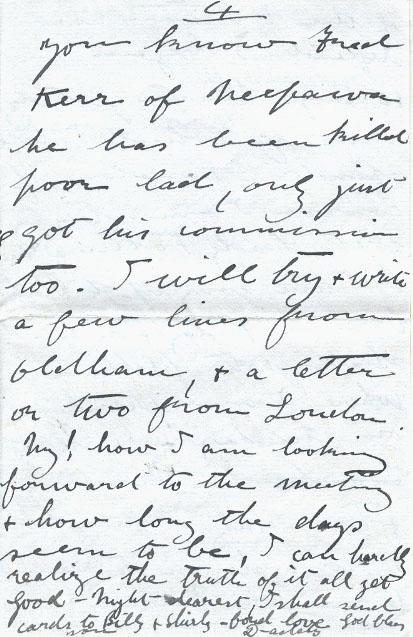 4
you know Fred
Kerr of Neepawa
he has been killed
poor lad, only just
got his commission
too. I will try + write
a few lines from
Oldham, + a letter
or two from London.
My! how I am looking
forward to the meeting
+ how long the days
seem to be, I can hardly
realize the truth of it all yet
Good-Night dearest, I shall send
cards to Billy + Shirly - love God bless